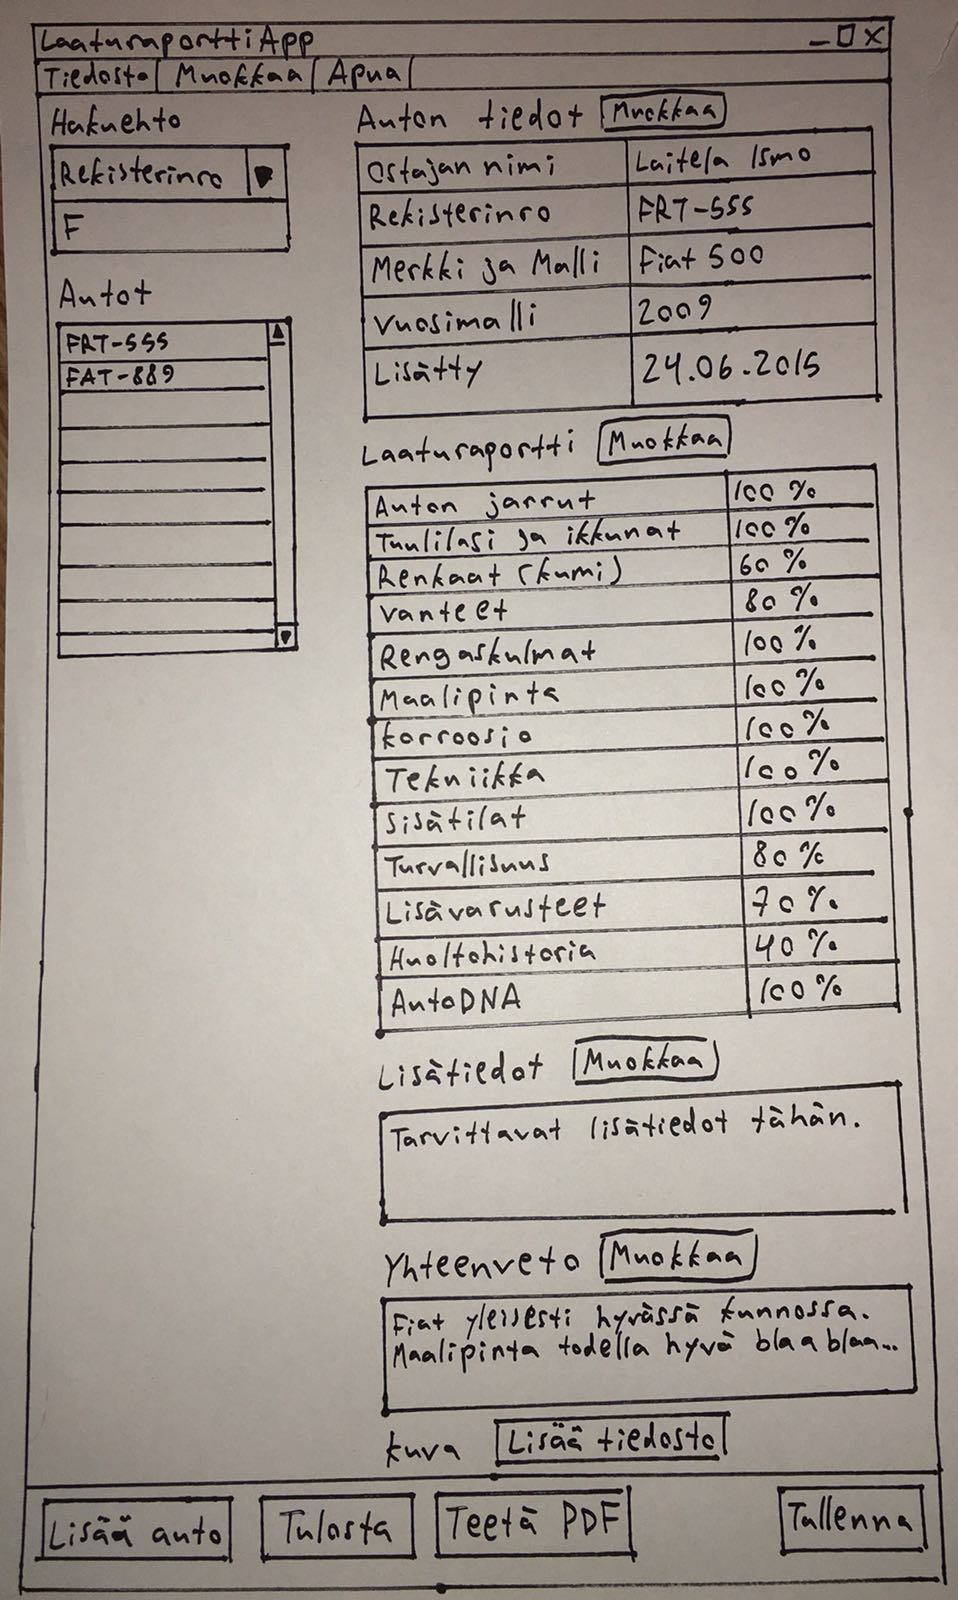 LaaturaporttiApp
Tiedosto Muokkaa Apua
Hakuehto
Rekisterinro
F
Autot
FRT-555
FAT-889
Auton tiedot Muokkaa
Ostajan nimi Laitela Ismo
Rekisterinro FRT-555
Merkki ja Malli Fiat 500
Vuosimalli 2009
Lisätty 24.06.2015
Laaturaportti Muokkaa
Auton jarrut 100 %
Tuulilasi ja ikkunat 100 %
Renkaat (kumi) 60 %
Vanteet 80 %
Rengaskulmat 100 %
Maalipinta 100 %
Korroosio 100 %
Tekniikka 100 %
Sisätilat 100 %
Turvallisuus 80 %
Lisävarusteet 70 %
Huoltohistoria 40 %
AutoDNA 100 %
Lisätiedot Muokkaa
Tarvittavat lisätiedot tähän.
Yhteenveto Muokkaa
Fiat yleisesti hyvässä kunnossa.
Maalipinta todella hyvä blaa blaa...
Kuva Lisää tiedosto
Lisää auto Tulosta Teetä PDF Tallenna